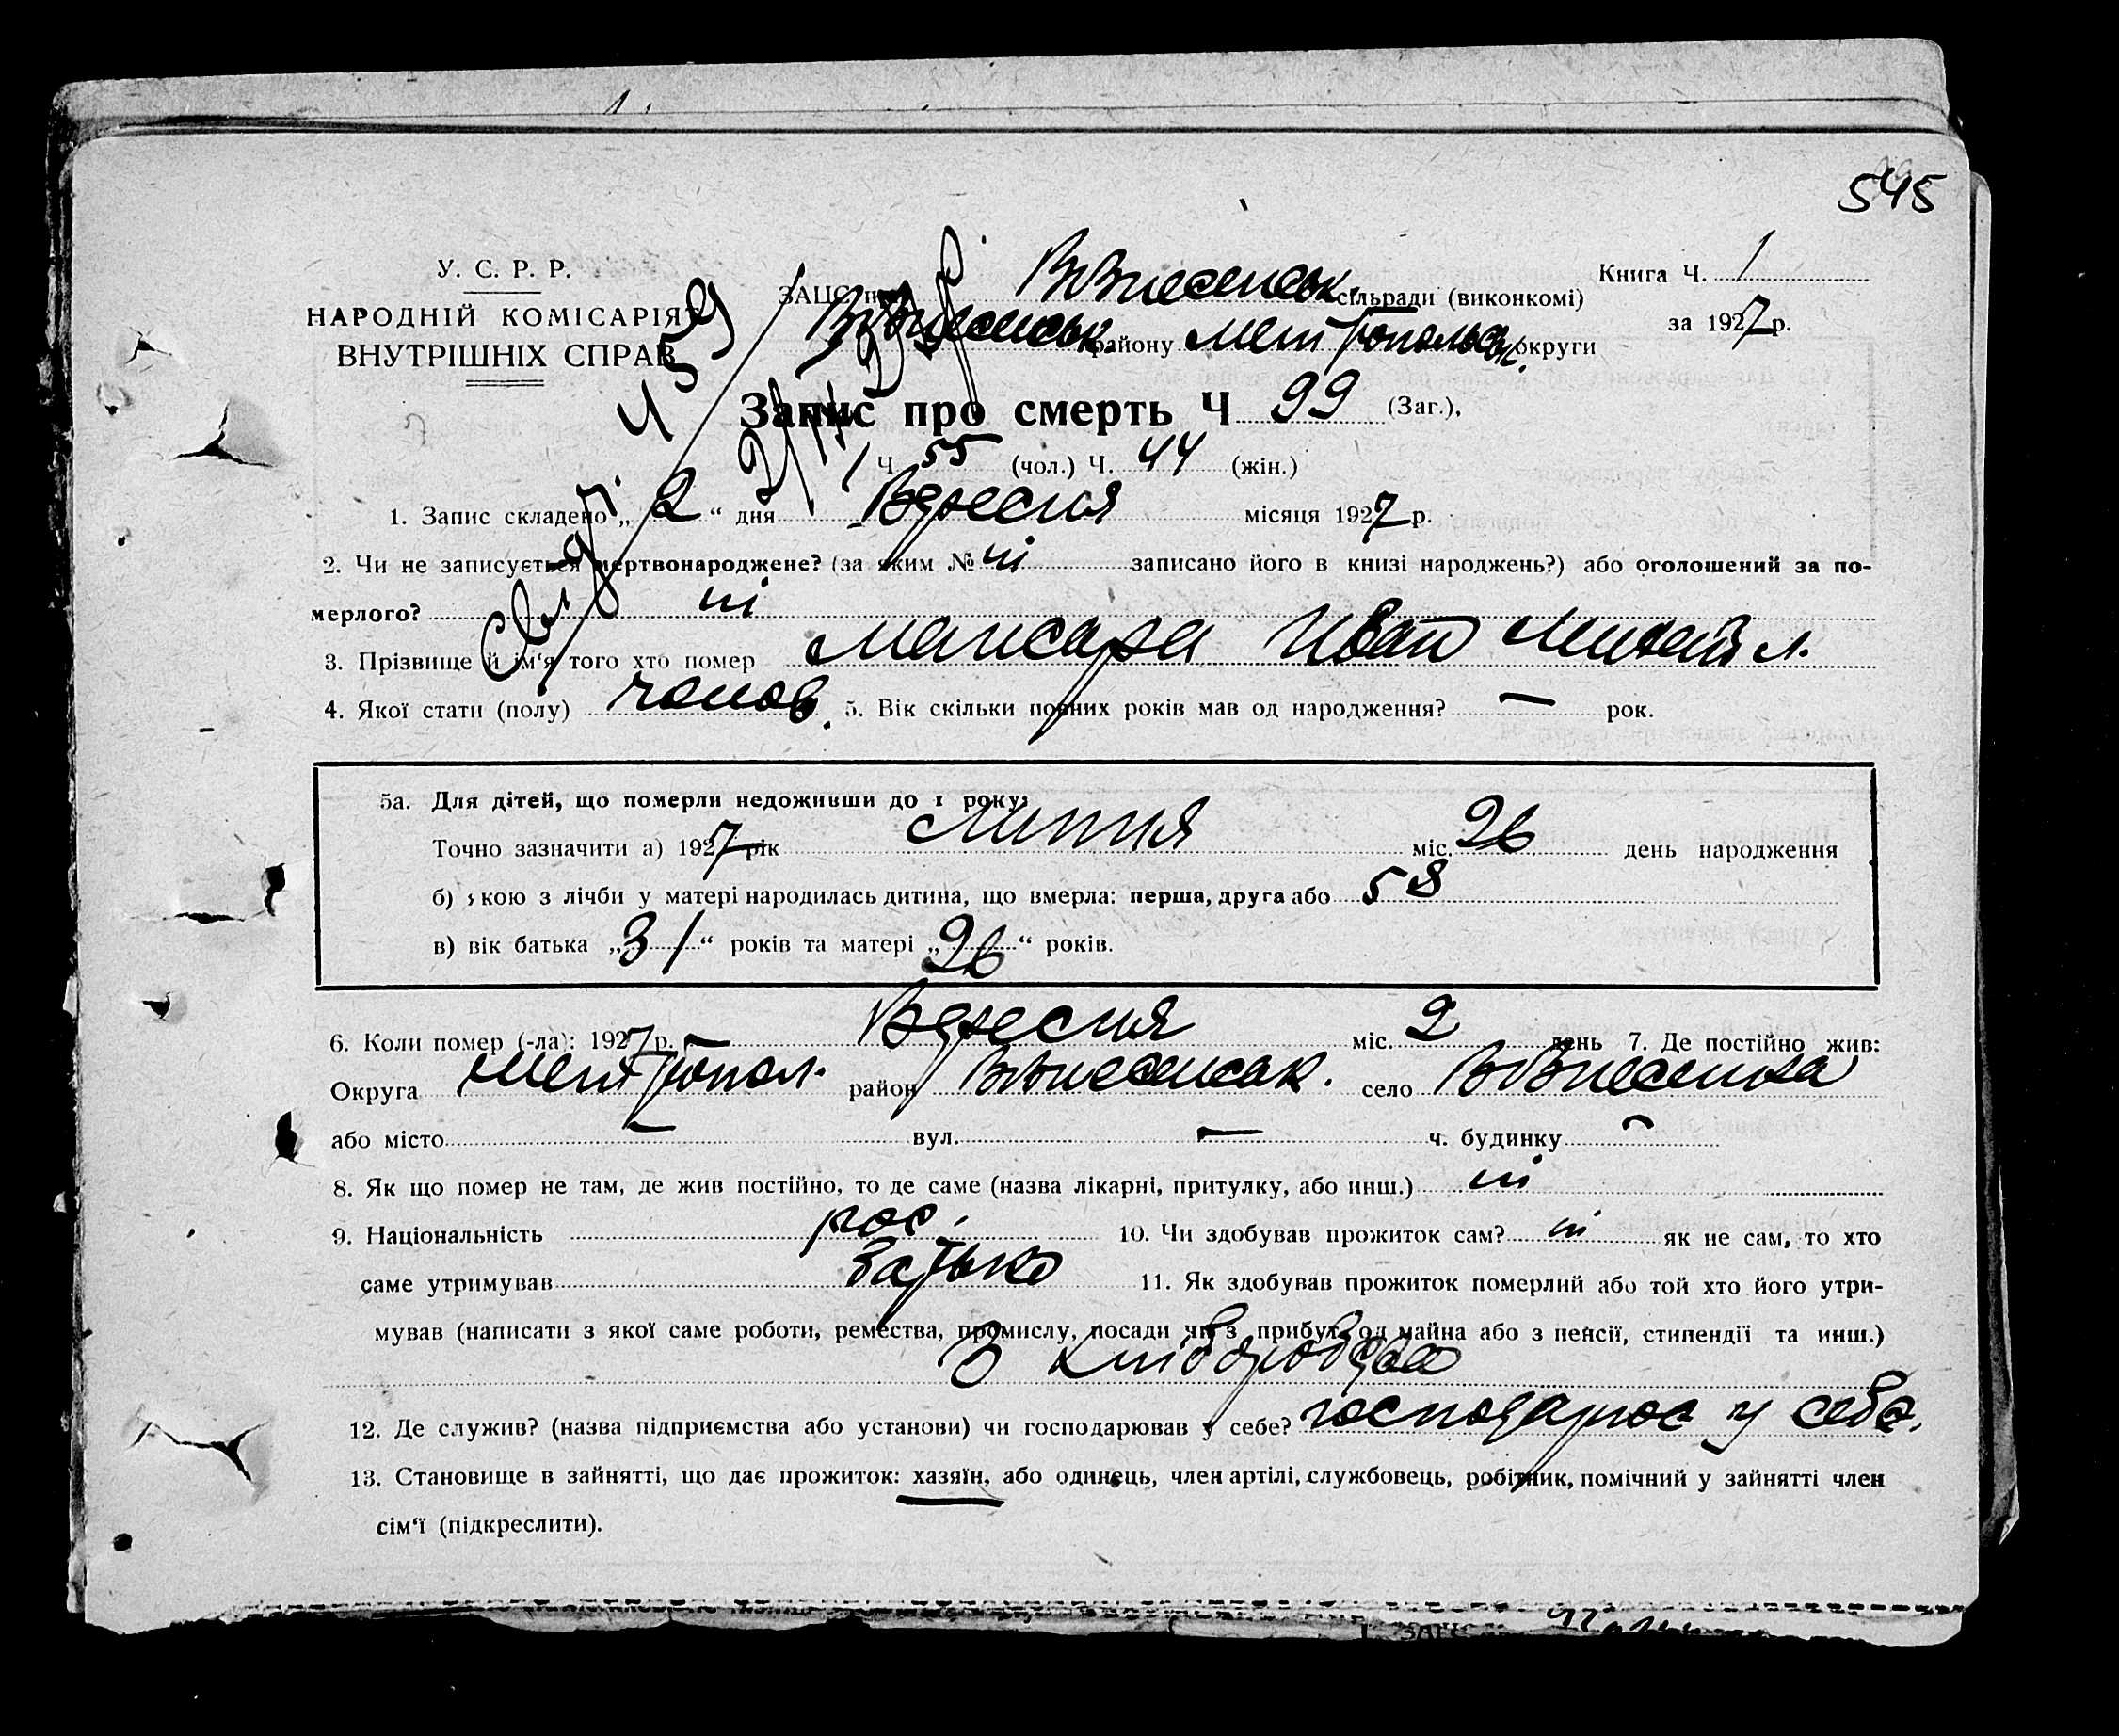 545
У. С. Р. Р.
НАРОДНІЙ КОМІСАРІЯТ
ВНУТРІШНІХ СПРАВ
ЗАЦС при Вознесенськ. сільради (виконкомі)
Вознесенськ. району Мелітопольськ. округи
Книга Ч. 1
за 1927 р.
Запис про смерть Ч 99 (Заг.),
Ч. 55 (чол.) Ч. 44 (жін.)
1. Запис складено „ 2 “ дня Вересня місяця 1927 р.
2. Чи не записується мертвонароджене? (за яким № ні записано його в книзі народжень?) або оголошений за по-
мерлого? ні
3. Прізвище й ім‘я того хто помер Иван
4. Якої стати (полу) чолов. 5. Вік скільки повних років мав од народження? — рок.
5а. Для дітей, що померли недоживши до 1 року:
Точно зазначити а) 1927 рік Липня міс. 26 день народження
б) якою з лічби у матері народилась дитина, що вмерла: перша, друга або 5 я
в) вік батька „ 31 “ років та матері „ 26 “ років.
6. Коли помер (-ла): 1927 р. Вересня міс. 2 день 7. Де постійно жив:
Округа Мелітопол. район Вознесенськ. село Вознесенка
або місто — вул. — ч. будинку —
8. Як що помер не там, де жив постійно, то де саме (назва лікарні, притулку, або инш.) ні
9. Національність рос. 10. Чи здобував прожиток сам? ні як не сам, то хто
саме утримував батько 11. Як здобував прожиток померлий або той хто його утри-
мував (написати з якої саме роботи, ремества, промислу, посади чи з прибут. од майна або з пенсії, стипендії та инш.)
З хліборобства
12. Де служив? (назва підприємства або установи) чи господарював у себе? господарює у себе.
13. Становище в зайнятті, що дає прожиток: хазяїн, або одинець, член артілі, службовець, робітник, помічний у зайнятті член
сім‘ї (підкреслити).